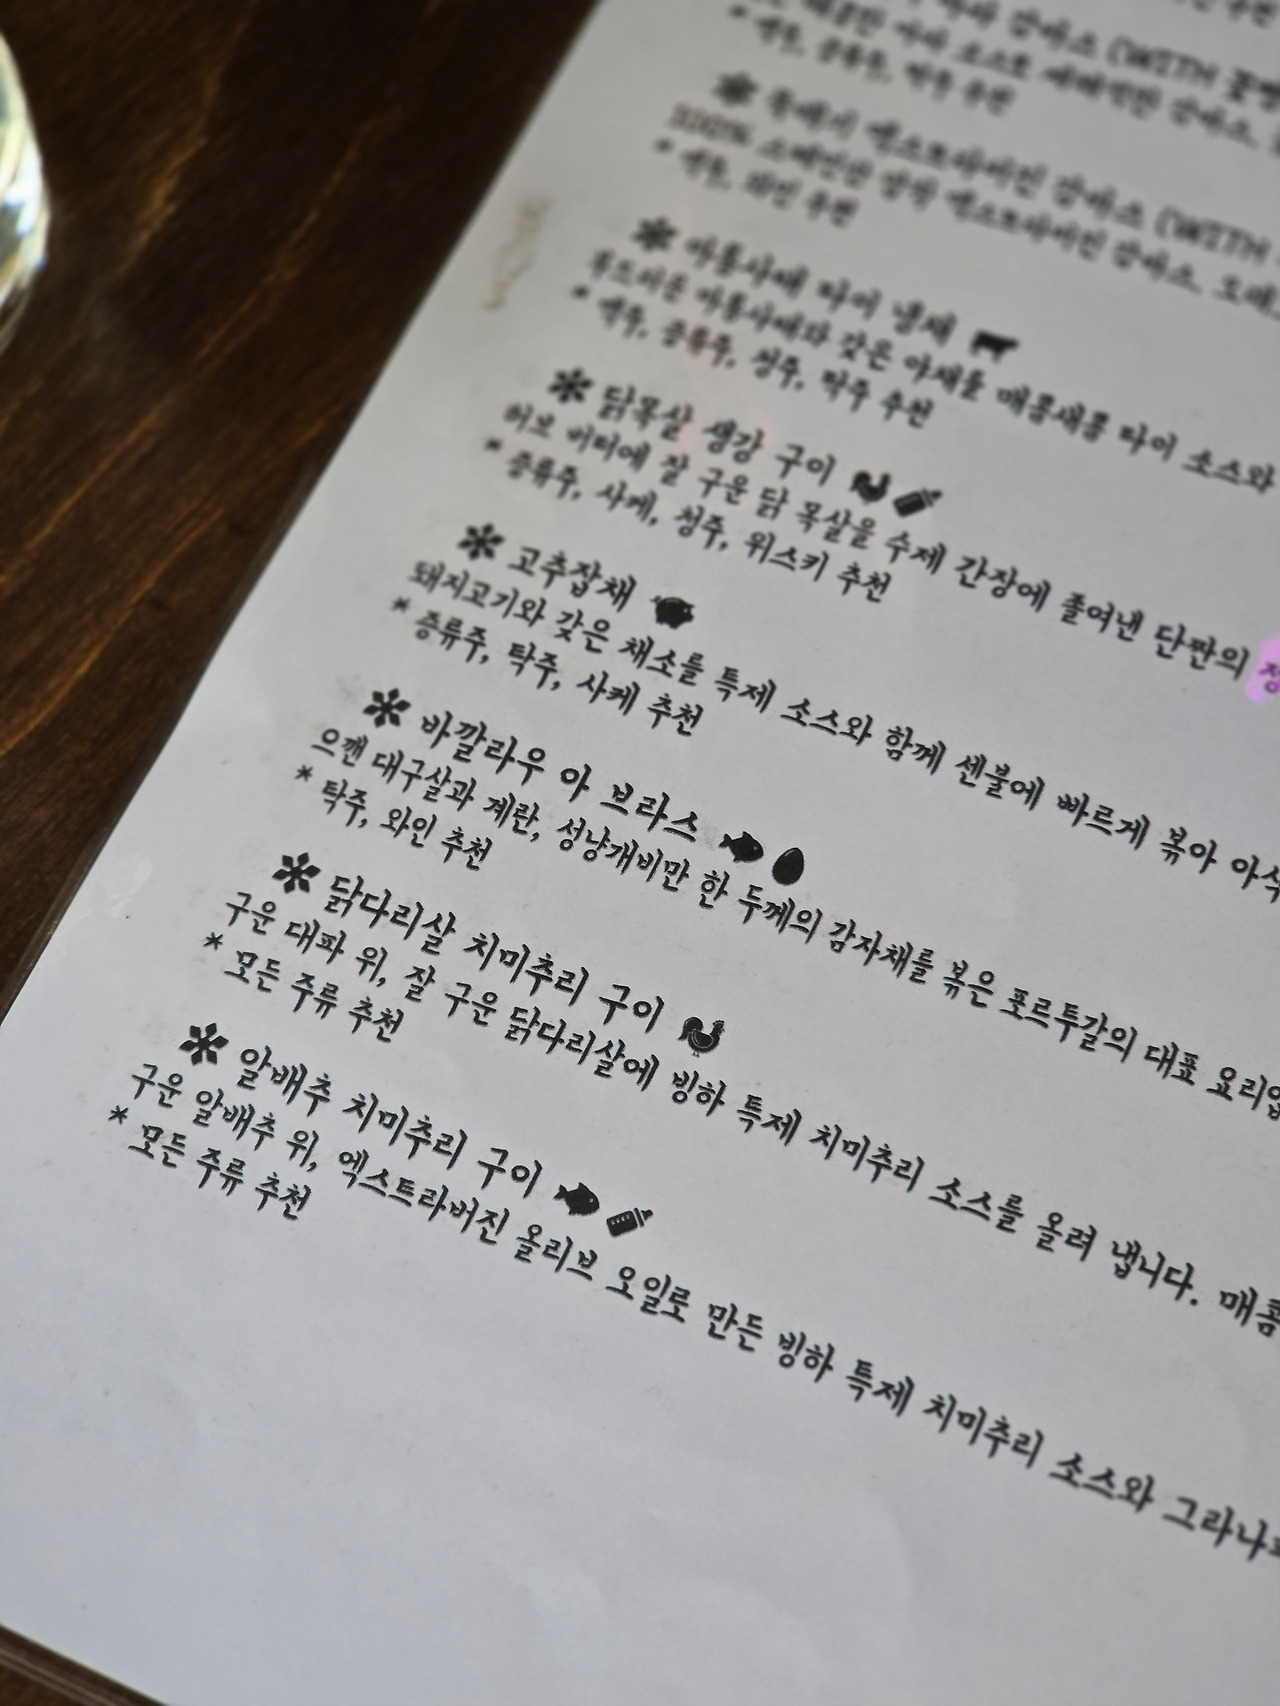 마라 감바스 (WITH 꽃빵
* 맥주, 증류주, 탁주 추천
엑스트라버진 감바스 (WITH
100% 스페인산 엑스트라버진 감바스.
* 맥주, 와인 추천
아롱사태 타이 냉채
부드러운 아롱사태와 갖은 야채를 매콤새콤 타이 소스와
* 맥주, 증류주, 청주, 탁주 추천
닭목살 생강 구이
허브 버터에 잘 구운 닭 목살을 수제 간장에 졸여낸 단짠의 정
* 증류주, 사케, 청주, 위스키 추천
고추잡채
돼지고기와 갖은 채소를 특제 소스와 함께 센불에 빠르게 볶아 아삭
* 증류주, 탁주, 사케 추천
바깔라우 아 브라스
으깬 대구살과 계란, 성냥개비만 한 두께의 감자채를 볶은 포르투갈의 대표 요리입
* 탁주, 와인 추천
닭다리살 치미추리 구이
구운 대파 위, 잘 구운 닭다리살에 빙하 특제 치미추리 소스를 올려 냅니다. 매콤
* 모든 주류 추천
알배추 치미추리 구이
구운 알배추 위, 엑스트라버진 올리브 오일로 만든 빙하 특제 치미추리 소스와 그라나
* 모든 주류 추천